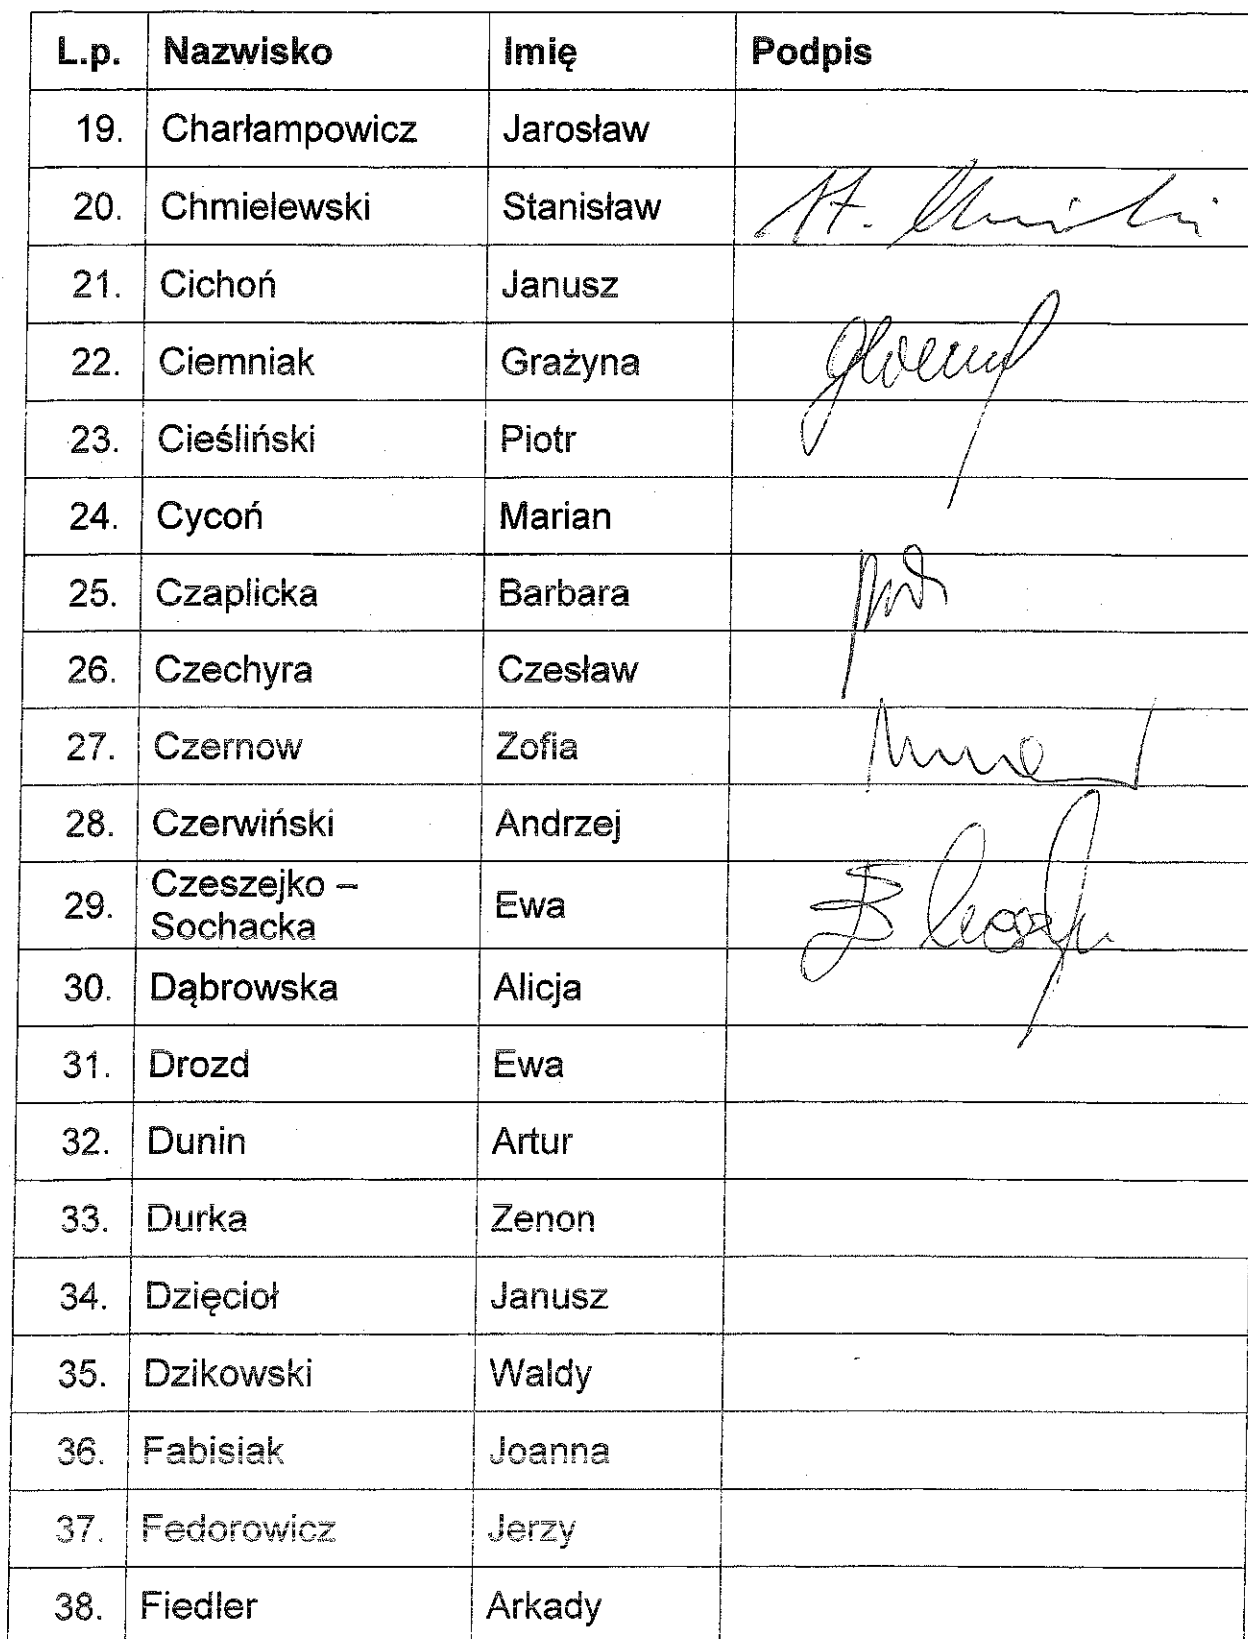 L.p. Nazwisko Imię Podpis
19. Charłampowicz Jarosław
20. Chmielewski Stanisław St.
21. Cichoń Janusz
22. Ciemniak Grażyna
23. Cieśliński Piotr
24. Cycoń Marian
25. Czaplicka Barbara
26. Czechyra Czesław
27. Czernow Zofia
28. Czerwiński Andrzej
29. Czeszejko –
Sochacka Ewa
30. Dąbrowska Alicja
31. Drozd Ewa
32. Dunin Artur
33. Durka Zenon
34. Dzięcioł Janusz
35. Dzikowski Waldy
36. Fabisiak Joanna
37. Fedorowicz Jerzy
38. Fiedler Arkady